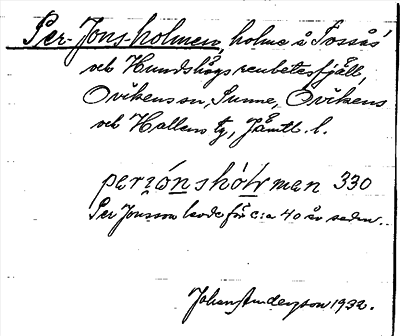 Per-Jons-holmen, holme å Tossås'
och Hundshögs renbetesfjäll,
Ovikens sn, Sunne, Ovikens
och Hallens tg, Jämtl. l.
330
Per Jonsson levde för c:a 40 år sedan..
Johan Anderson 1932.